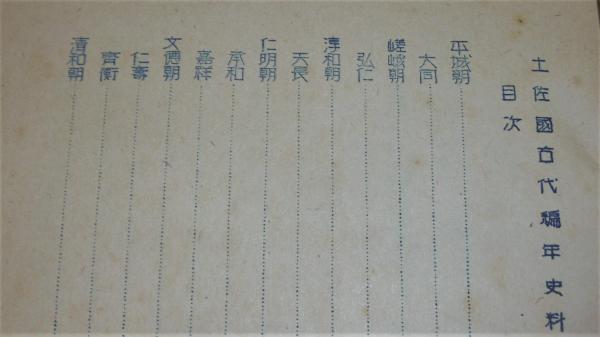 土佐國古代編年史料
目次
平城朝
大同
嵯峨朝
弘仁
淳和朝
天長
仁明朝
承和
嘉祥
文德朝
仁壽
齊衡
清和朝